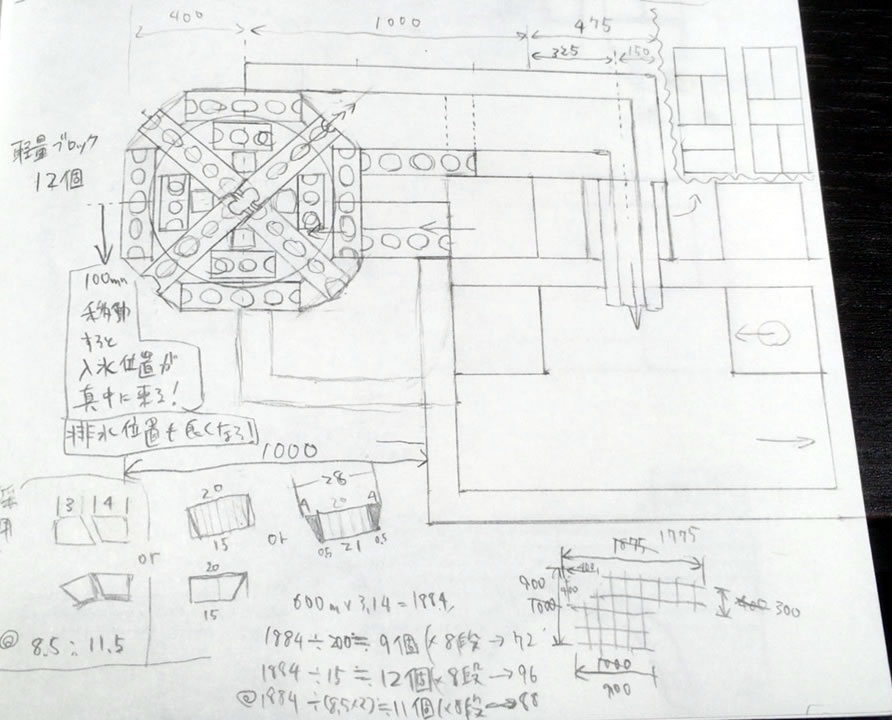 400
1000
475
325
150
軽量ブロック
12個
100mm
移動
すると
入水位置が
真中に来る!
排水位置も良くなる!
1000
採用
13 14
or
20
15
or
28
A 20 A
0.5 21 0.5
20
15
◎ 8.5 : 11.5
600m×3.14=1884
1884÷200≒9個(×8段→72
1884÷15≒12個(×8段→96
◎1884÷(8.5×2)≒11個(×8段→88
1075 1775
900
1000
300
1000
900